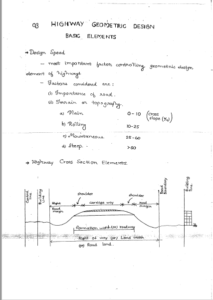 03 HIGHWAY GEOMETRIC DESIGN
BASIC ELEMENTS
→ Design Speed
- most importance factor controlling geometric design
element of highways
- Factors considered are:
1) Importance of road.
2) Terrain or topography.
a) Plain 0-10 (cross slope (%))
b) Rolling 10-25
c) Mountainous 25-60
d) Steep >60
→ Highway Cross Section Elements
Building line
shoulder
shoulder
Road margin
carriage way
Road margin
Formation width/ roadway
Right of way (or) Land width
or Road land.